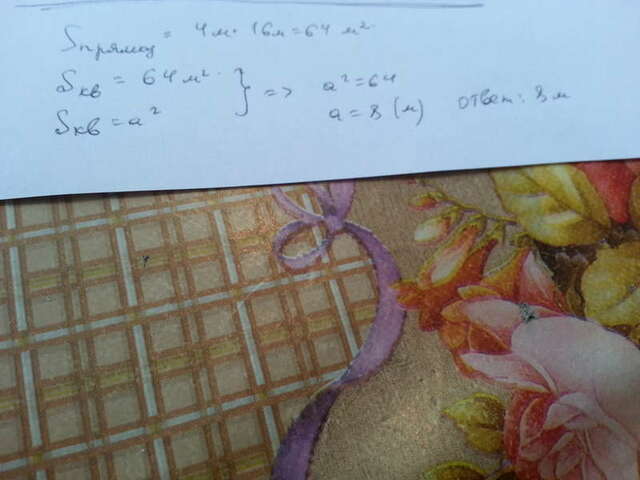 Sпрямоуг = 4м · 16м = 64 м²
Sкв = 64 м² } => a² = 64
Sкв = a² a = 8 (м) ответ: 8 м